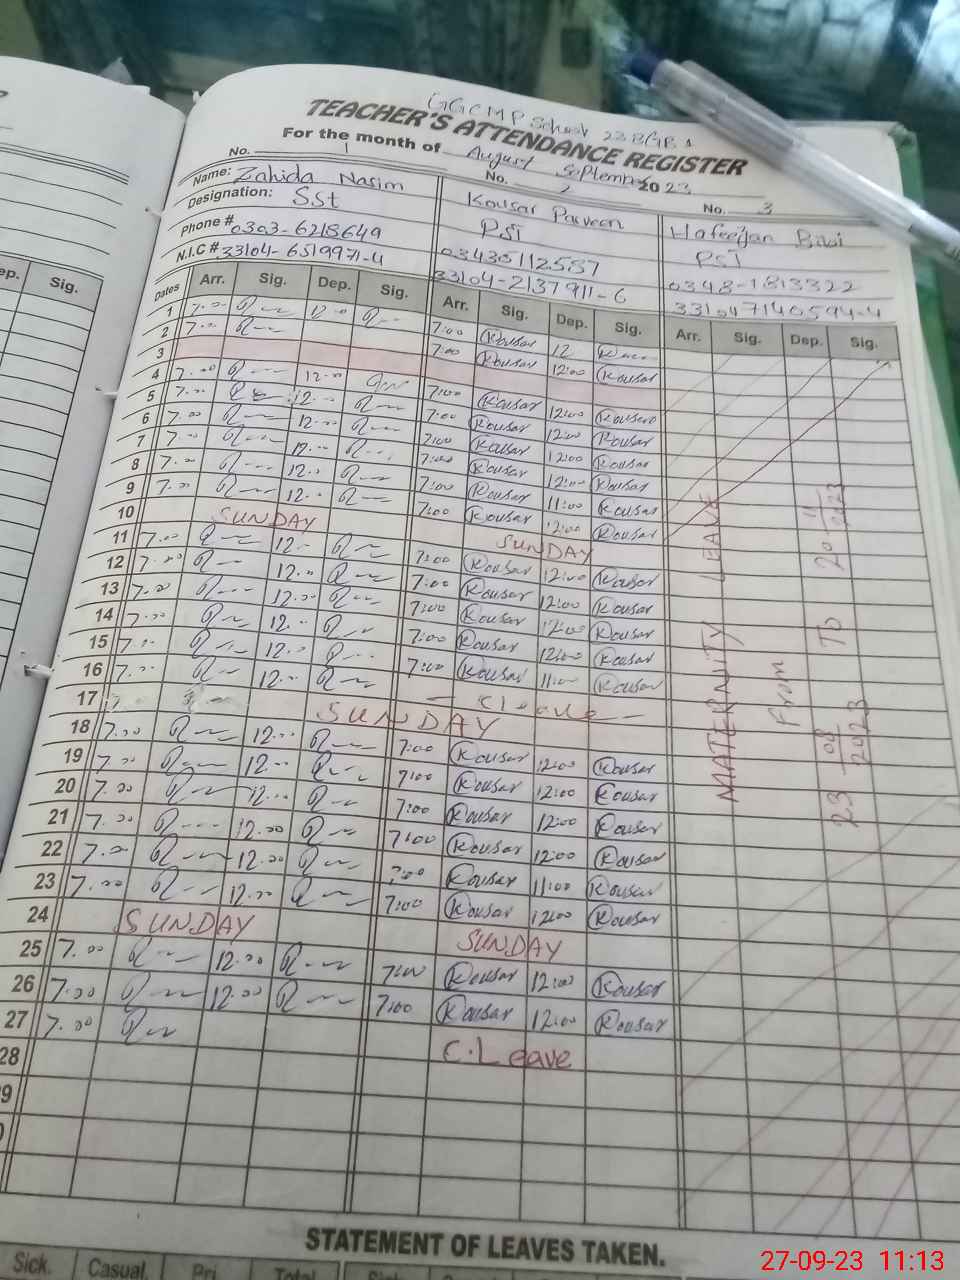 GGCMP School 238GB 1
TEACHER'S ATTENDANCE REGISTER
For the month of August September 2023
No. 1 No. 2 No. 3
Name: Zahida Nasim Kousar Parveen Hafeezan Bibi
Designation: S.St PST PST
Phone # 0303-6218649 03430112587 0348-1813322
N.I.C # 33104-6519971-4 33104-2137911-6 331047140594-4
Dates Arr. Sig. Dep. Sig. Arr. Sig. Dep. Sig. Arr. Sig. Dep. Sig.
1 7.00 12.00 7:00 Kousar 12
2 7.00 7:00 Kousar 12:00 Kousar
3
4 7.00 12.00 7:00 Kousar 12:00 Kousar
5 7.00 12.00 7:00 Kousar 12:00 Kousar
6 7.00 12.00 7:00 Kousar 12:00 Kousar
7 7.00 12.00 7:00 Kousar 12:00 Kousar
8 7.00 12.00 7:00 Kousar 11:00 Kousar
9 7.00 12.00 7:00 Kousar 12:00 Kousar
10 SUNDAY SUNDAY
11 7.00 12.00 7:00 Kousar 12:00 Kousar
12 7.00 12.00 7:00 Kousar 12:00 Kousar
13 7.00 12.00 7:00 Kousar 12:00 Kousar
14 7.00 12.00 7:00 Kousar 12:00 Kousar
15 7.00 12.00 7:00 Kousar 11:00 Kousar
16 7.00 12.00 C leave
17 SUNDAY
18 7.00 12.00 7:00 Kousar 12:00 Kousar
19 7.00 12.00 7:00 Kousar 12:00 Kousar
20 7.00 12.00 7:00 Kousar 12:00 Kousar
21 7.00 12.00 7:00 Kousar 12:00 Kousar
22 7.00 12.00 7:00 Kousar 11:00 Kousar
23 7.00 12.00 7:00 Kousar 12:00 Kousar
24 SUNDAY SUNDAY
25 7.00 12.00 7:00 Kousar 12:00 Kousar
26 7.00 12.00 7:00 Kousar 12:00 Kousar
27 7.00 C. Leave
28
9
MATERNITY LEAVE
From To
23 08 2023 20 11 2023
STATEMENT OF LEAVES TAKEN.
Sick. Casual. Pri. Total
ep. Sig.
27-09-23 11:13